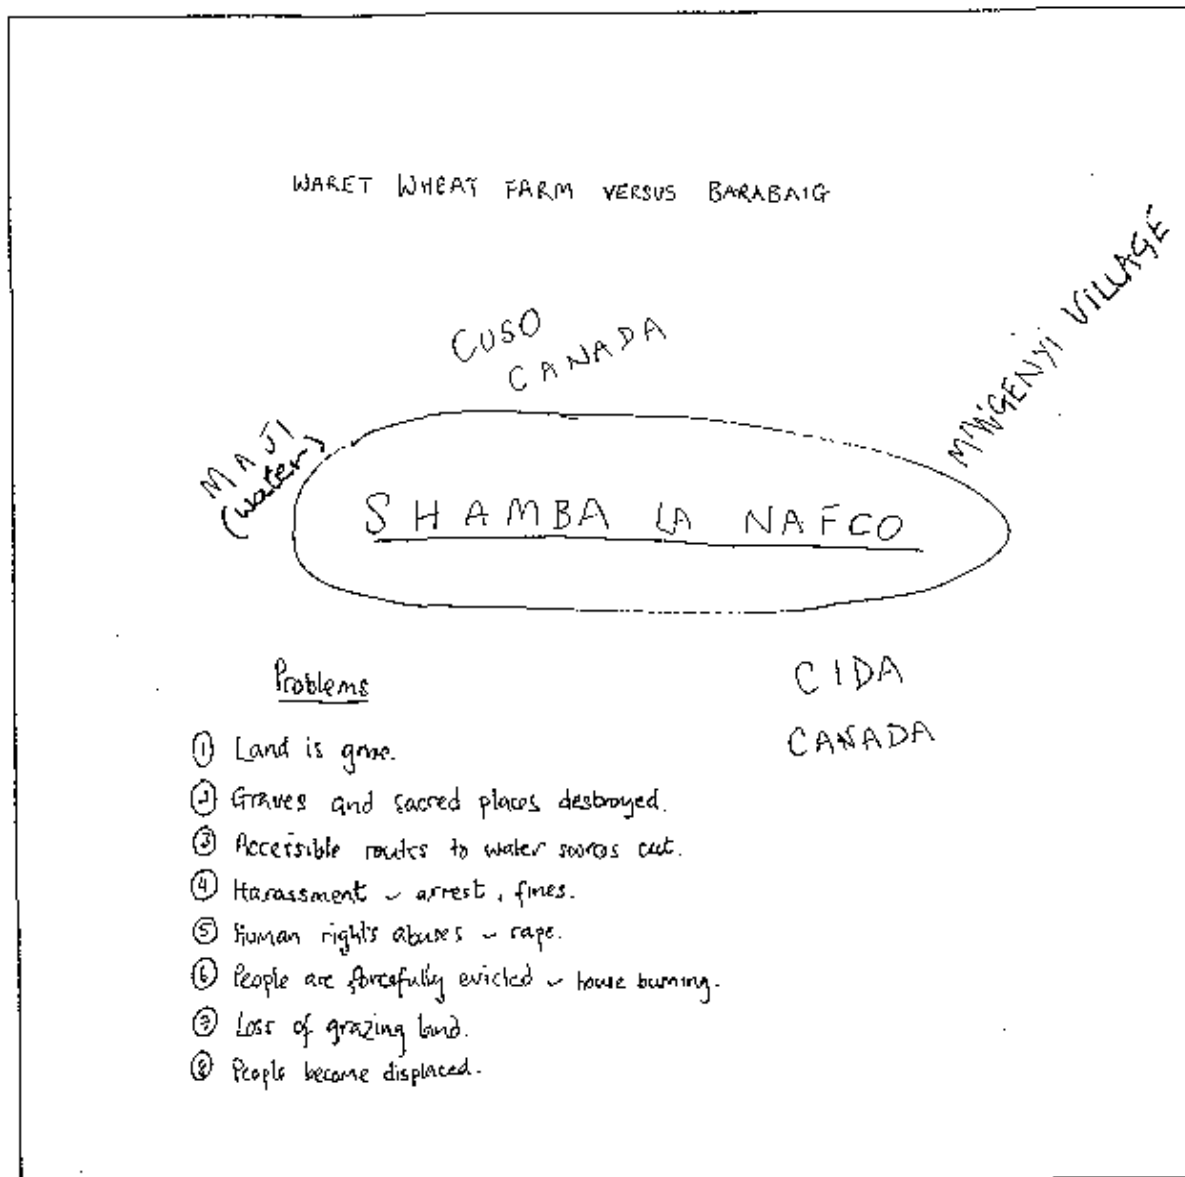 WARET WHEAT FARM VERSUS BARABAIG
CUSO
CANADA
M'WGENYI VILLAGE
MAJI
(water)
SHAMBA LA NAFCO
CIDA
CANADA
Problems
① Land is gone.
② Graves and sacred places destroyed.
③ Accessible routes to water sources cut.
④ Harassment - arrest, fines.
⑤ Human rights abuses - rape.
⑥ People are forcefully evicted - house burning.
⑦ Loss of grazing land.
⑧ People become displaced.